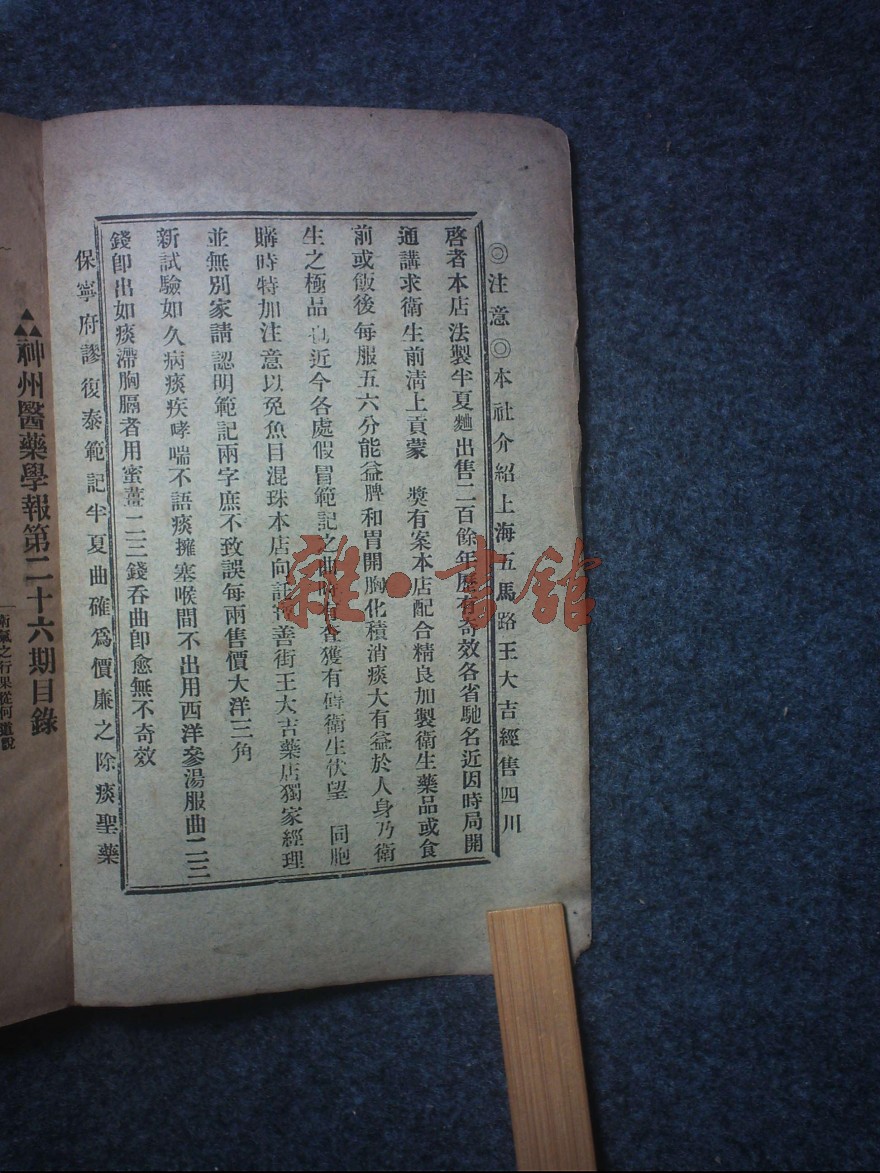 ◎注意◎本社介紹上海五馬路王大吉經售四川
保寧府謬復泰範記半夏曲確爲價廉之除痰聖藥
啓者本店法製半夏麯出售二百餘年歷有奇效各省馳名近因時局開
通講求衛生前淸上貢蒙 獎有案本店配合精良加製衛生藥品或食
前或飯後每服五六分能益脾和胃開胸化積消痰大有益於人身乃衛
生之極品也近今各處假冒範記之曲獲有碍衛生伏望 同胞
購時特加注意以免魚目混珠本店向善街王大吉藥店獨家經理
並無別家請認明範記兩字庶不致誤每兩售價大洋三角
新試驗如久病痰疾哮喘不語痰擁塞喉間不出用西洋參湯服曲二三
錢卽出如痰滯胸膈者用蜜薑二三錢呑曲卽愈無不奇效
▲▲神州醫藥學報第二十六期目錄
衛氣之行果從何道說
雜·書館